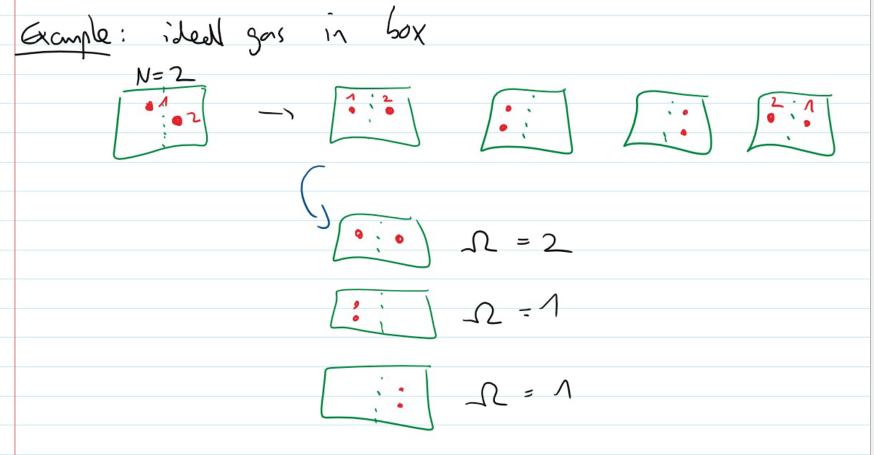 Example: ideal gas in box
N=2
1 2 → 1 2 2 1
Ω = 2
Ω = 1
Ω = 1